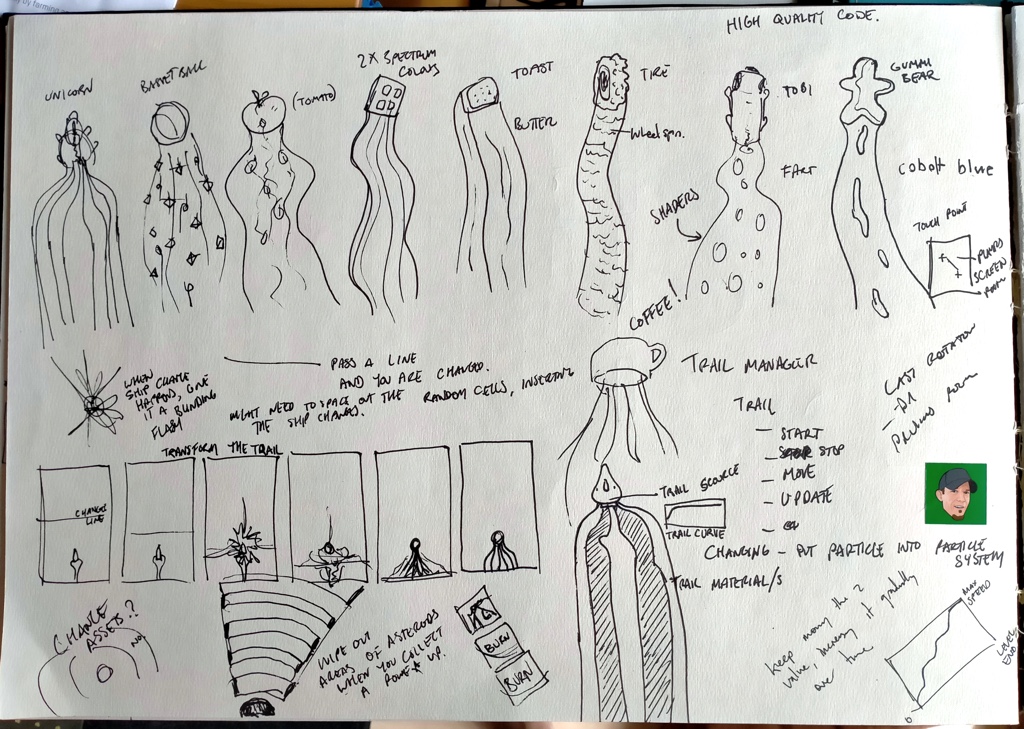 by farming
HIGH QUALITY CODE.
UNICORN
BASKET BALL
(TOMATO)
2X SPECTRUM
COLOURS
TOAST
BUTTER
TIRE
Wheel spin.
TOBI
FART
SHADERS
GUMMI
BEAR
cobalt blue
TOUCH POINT
PUMPS
SCREEN
ROOM
COFFEE!
WHEN
SHIP CHANGE
HAPPENS, GIVE
IT A BLINDING
FLASH
PASS A LINE
AND YOU ARE CHANGED.
MIGHT NEED TO SPACE OUT THE RANDOM CELLS, INSERTING
THE SHIP CHANGES.
TRAIL MANAGER
TRAIL
- START
- STOP
- MOVE
- UPDATE
LAST ROTATION
PREVIOUS ROOM
TRANSFORM THE TRAIL
CHANGE
LINE
TRAIL SOURCE
TRAIL CURVE
CHANGING - PUT PARTICLE INTO PARTICLE
SYSTEM
TRAIL MATERIAL/S
CHANGE
ASSETS?
NO!
WIPE OUT
AREAS OF ASTEROIDS
WHEN YOU COLLECT
A POWER UP.
BURN
BURN
keep moving the z
value, increase it gradually
over time
MAX
SPEED
LEVEL
END
0